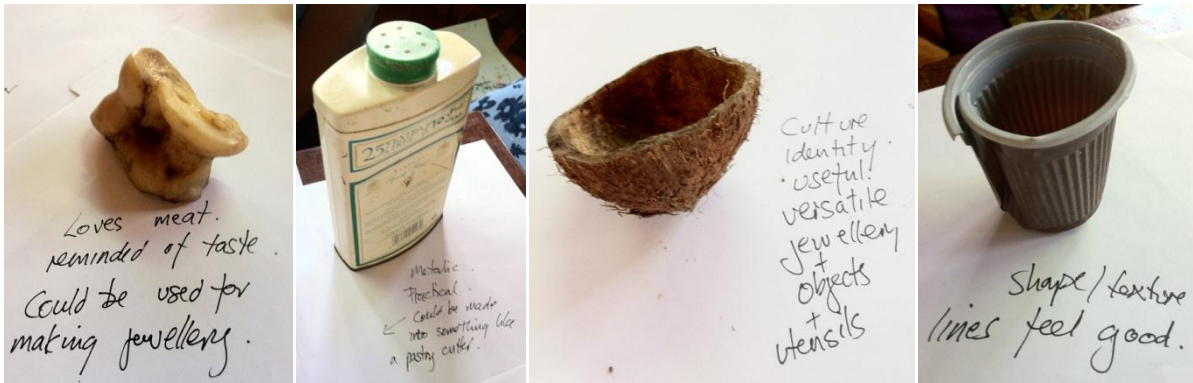 Loves meat.
reminded of taste.
Could be used for
making jewellery.
25%
Metallic.
Practical.
Could be made
into something like
a pastry cutter.
Culture
identity.
useful!
versatile
jewellery
+
objects
+
utensils
shape/texture
lines feel good.